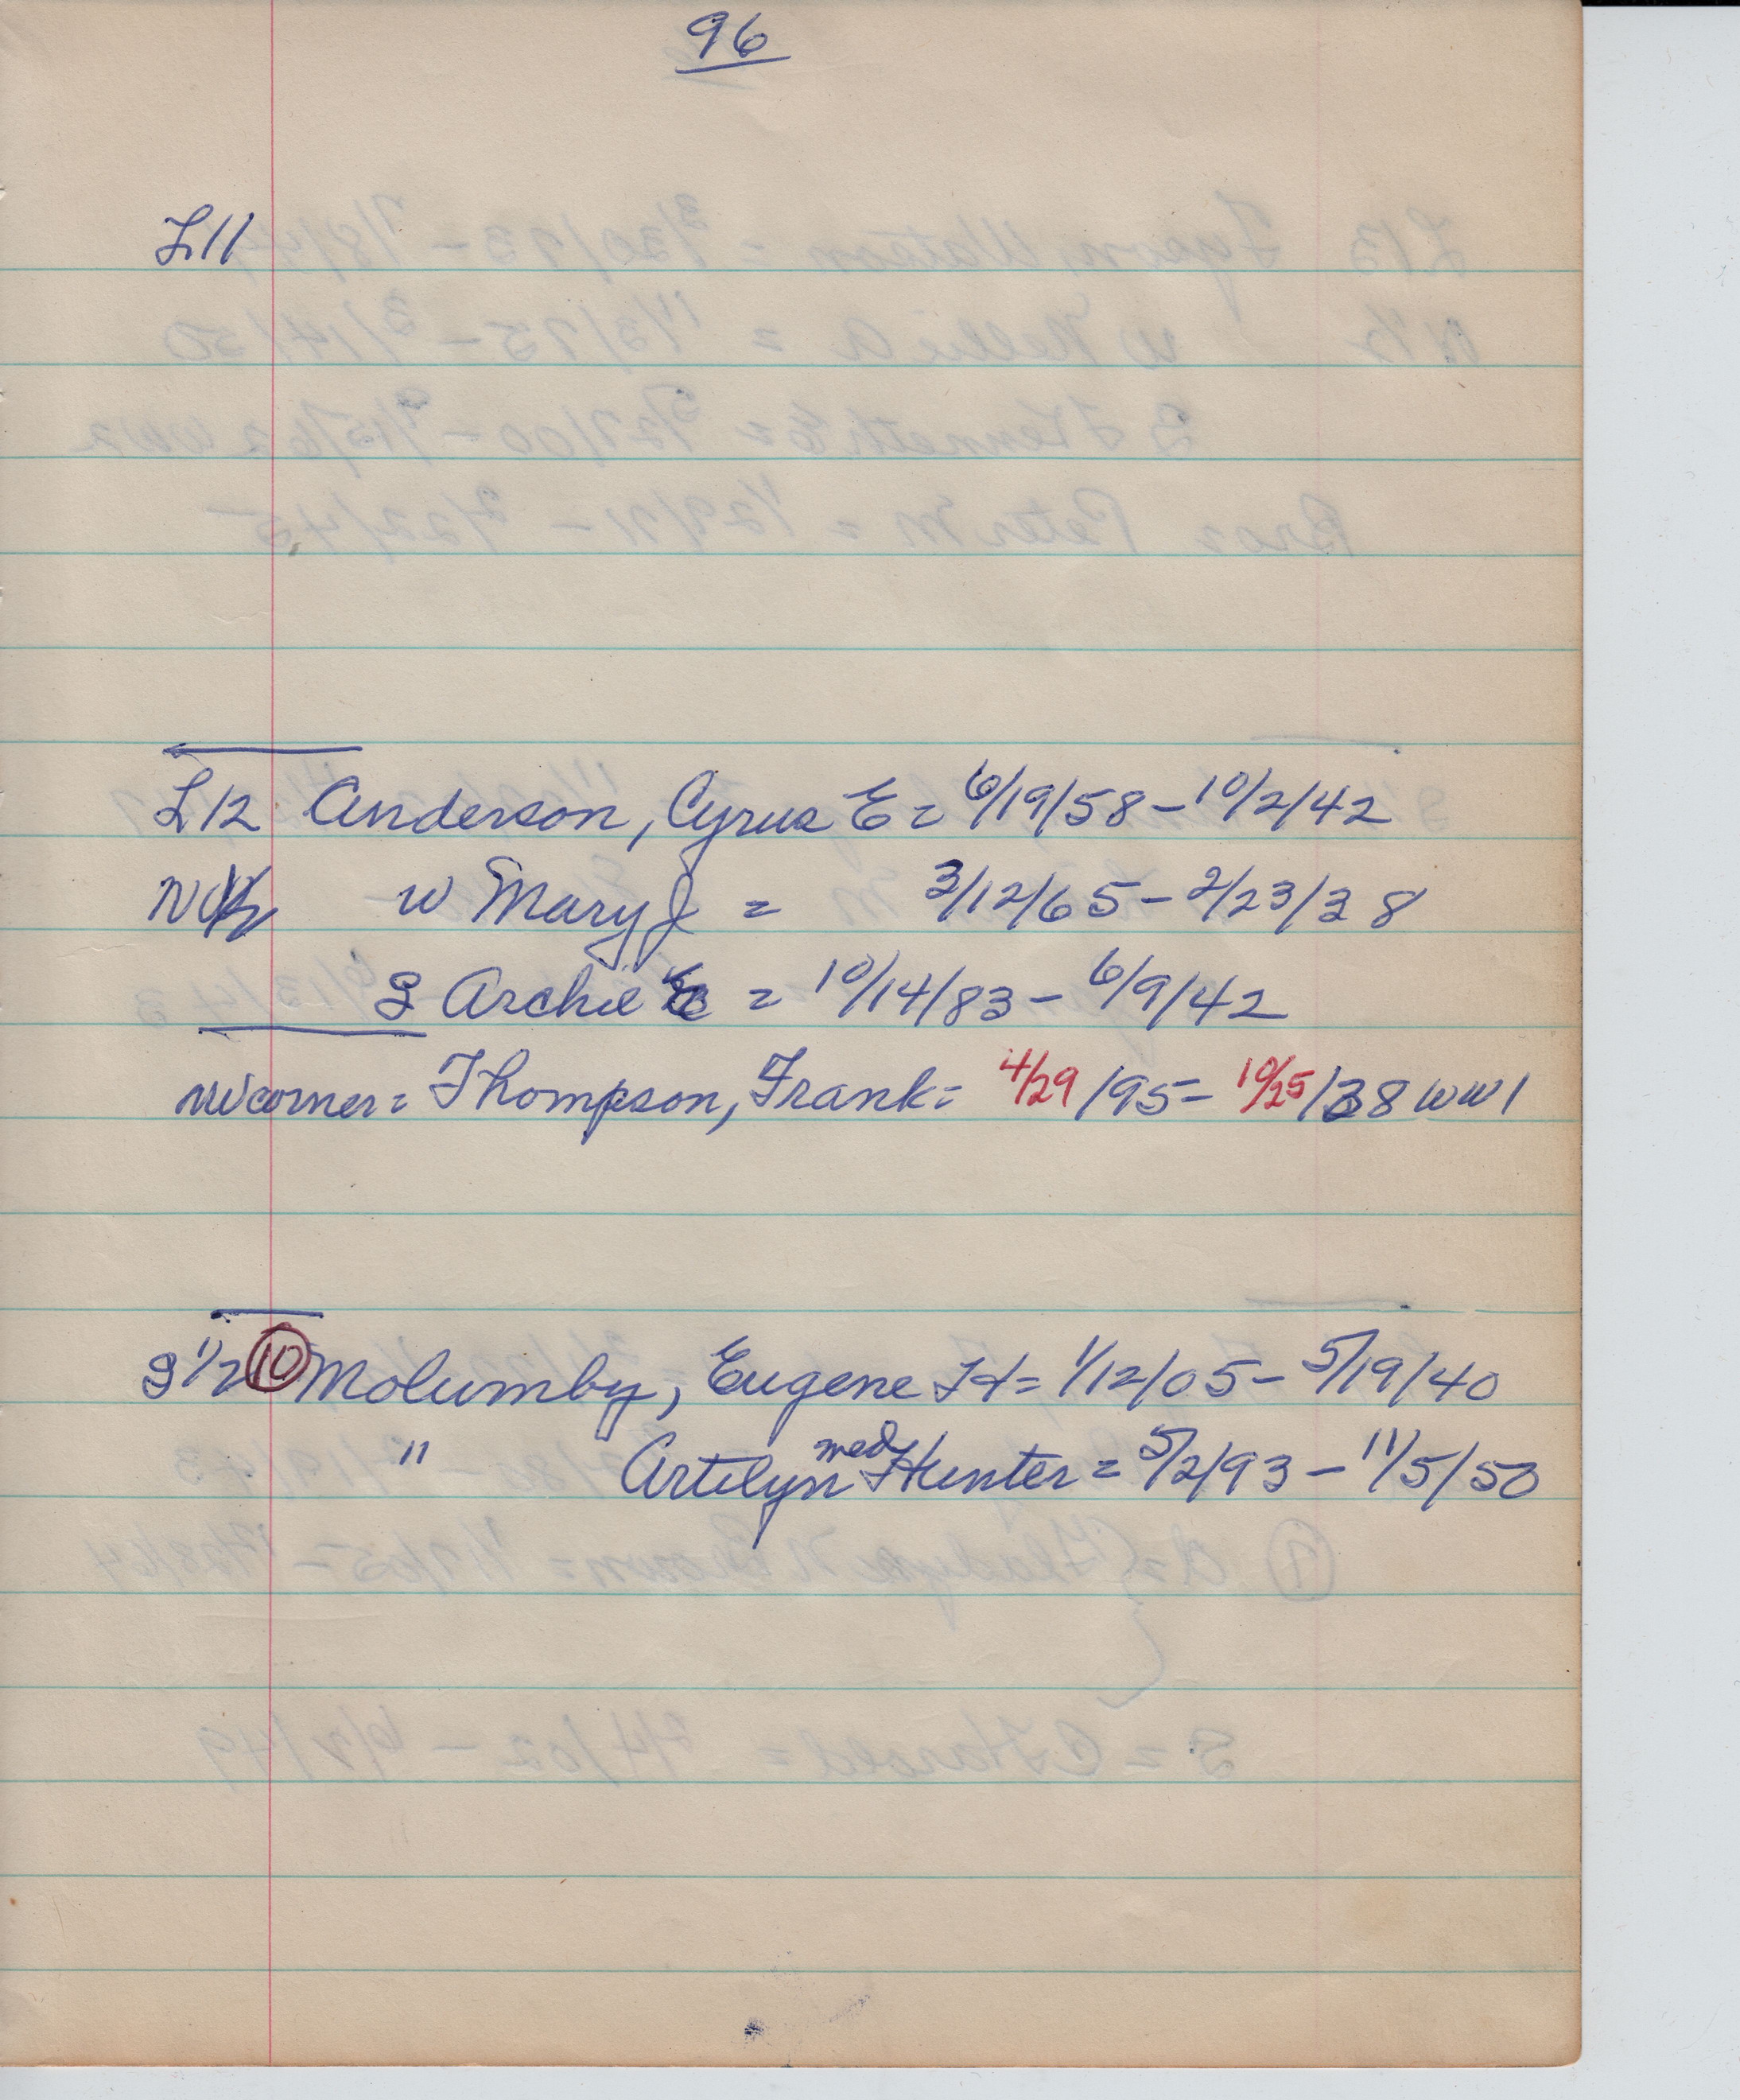 96
L11
L12 Anderson, Cyrus E = 6/19/58 - 10/2/42
N 1/2 w Mary J = 3/12/65 - 2/23/38
S Archie E = 10/14/83 - 6/9/42
NW corner = Thompson, Frank = 4/29/95 - 10/25/38 WW1
S 1/2 10 Molumby, Eugene H = 1/12/05 - 5/19/40
" Artelyn med Hunter = 5/2/93 - 11/5/50